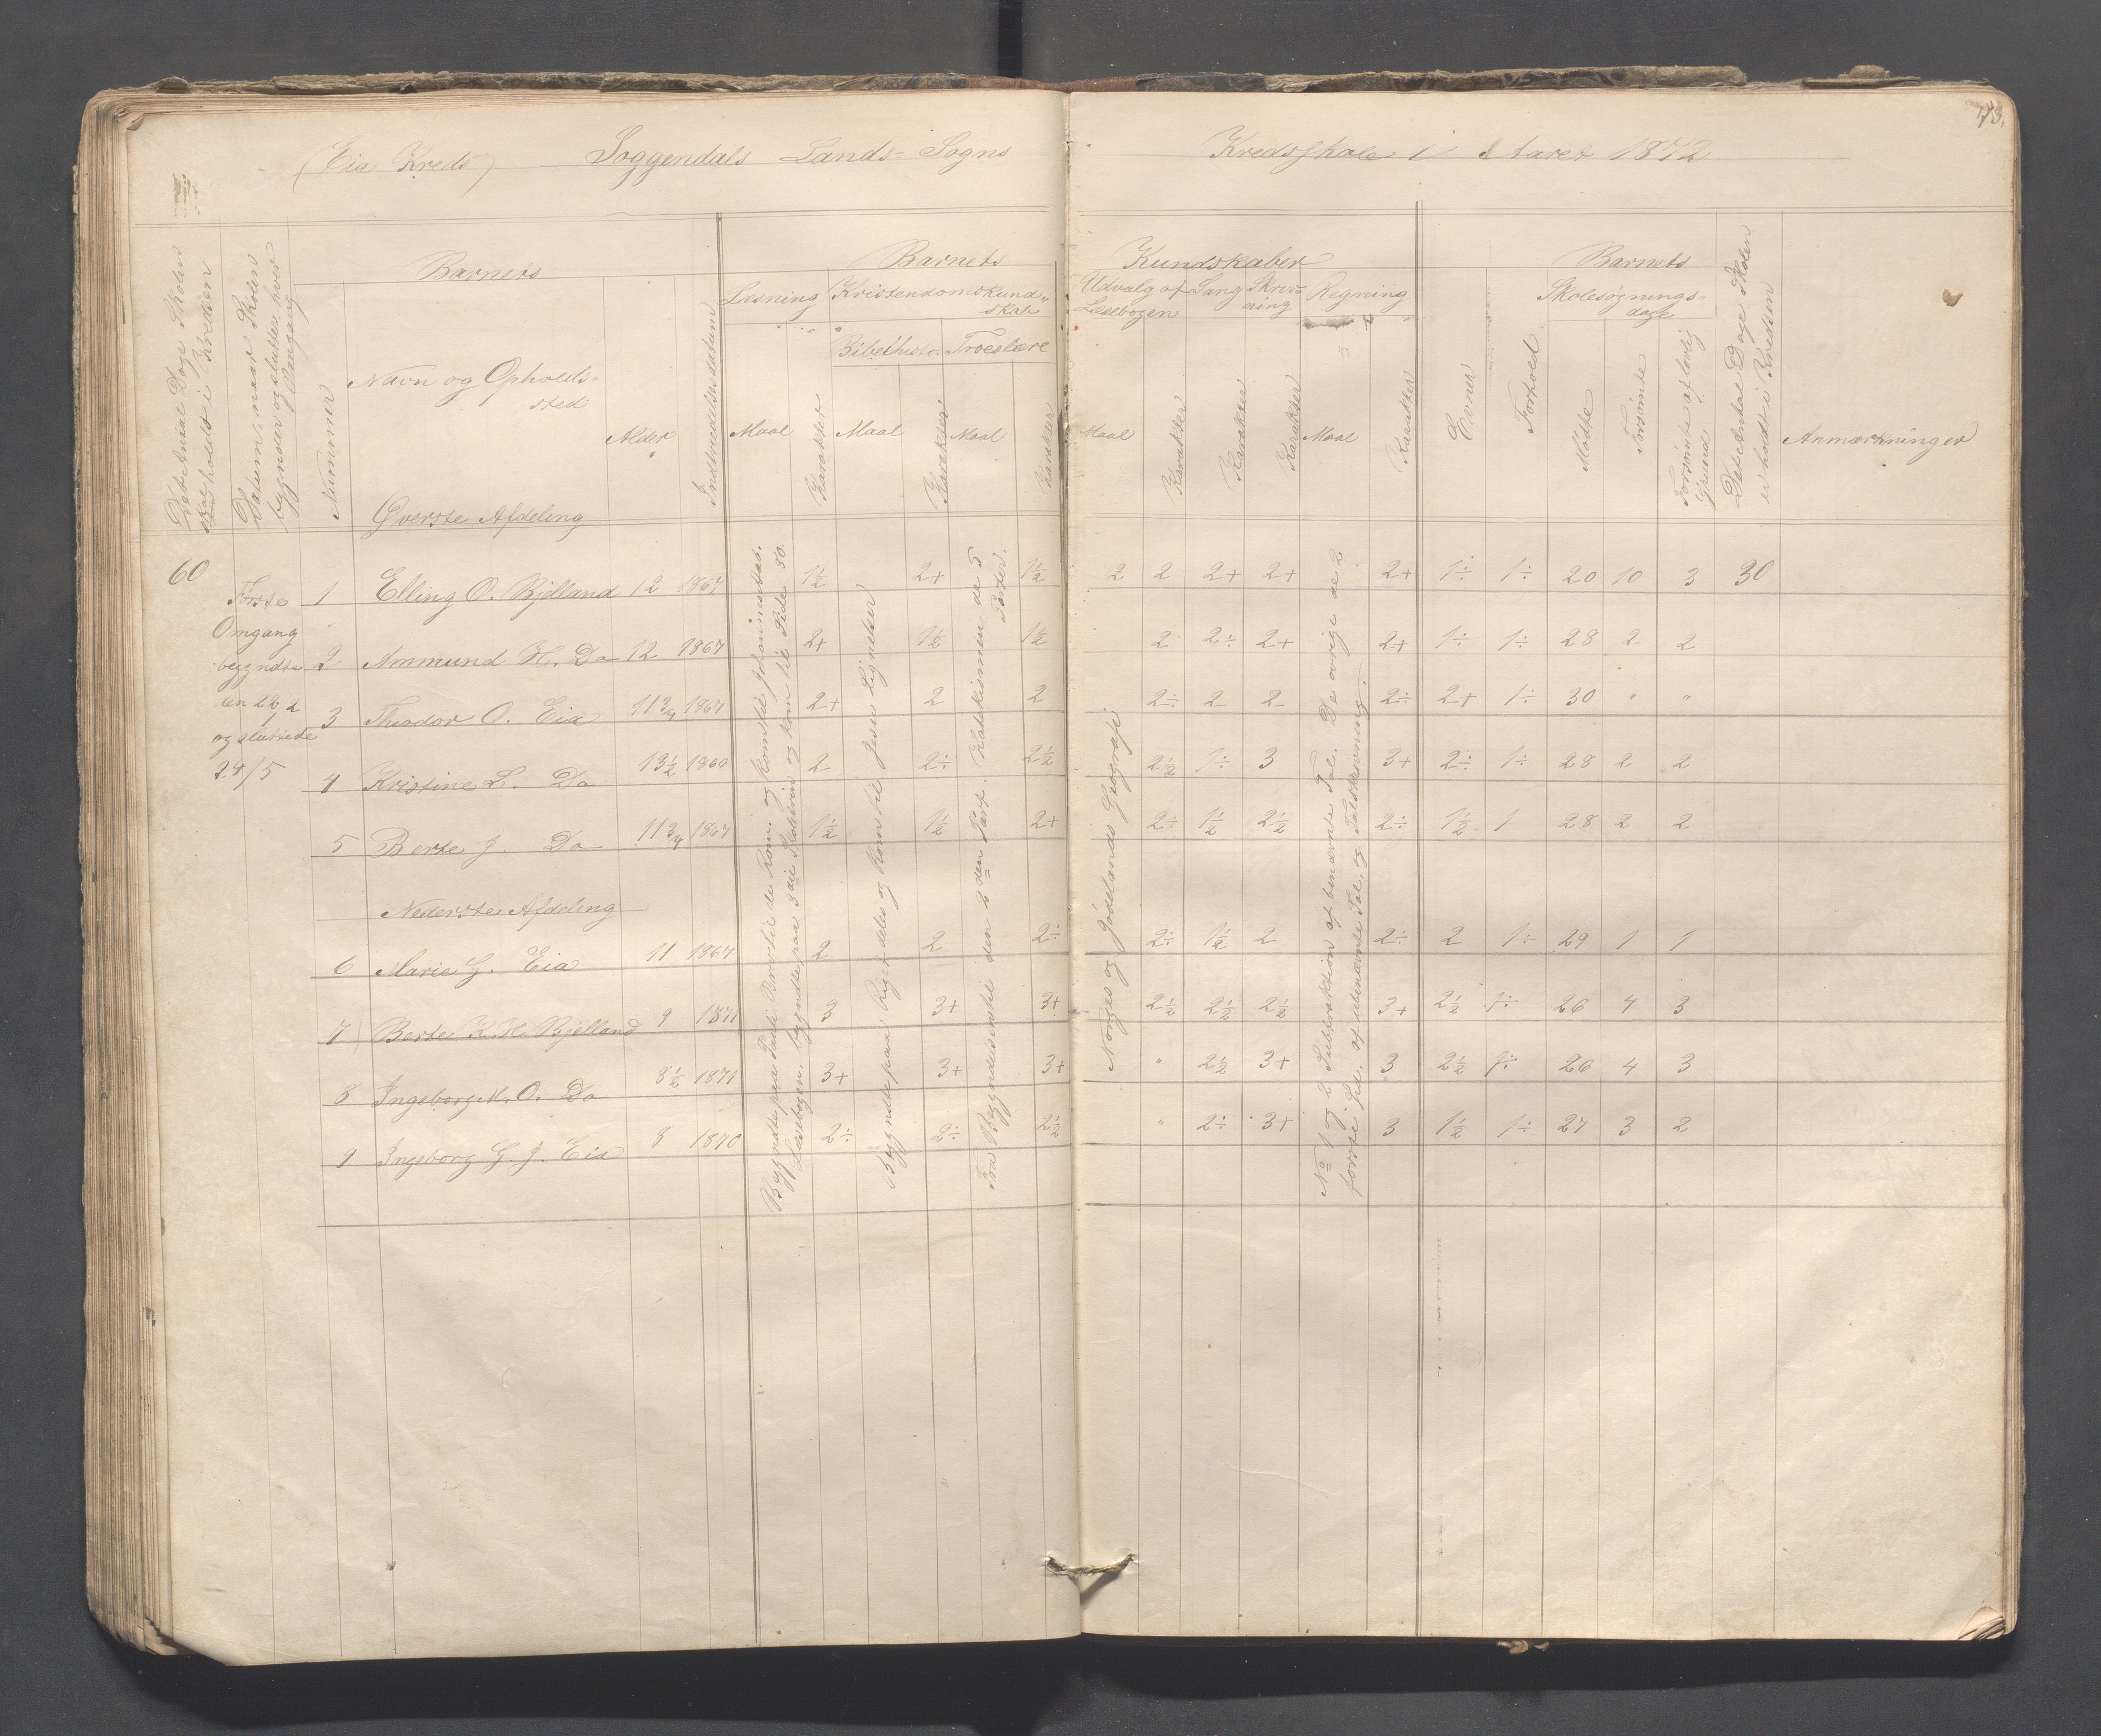 73.
(Eia Kreds) Soggendals Lands-Sogns Kredsskole i Aaret 1872
Det Antal Dage Skolen
skal holdes i Kredsen
Datum, naar Skolen
begynder og slutter hver
Omgang
Nummer
Barnets
Navn og Opholds-
sted
Alder
Indtrædelsesdatum
Barnets
Læsning
Maal
Karakter
Kristendomskund-
skab
Bibelhist.
Troeslære
Maal
Karakter
Maal
Karakter
Kundskaber
Udvalg af
Læsebogen
Sang
Skriv-
ning
Regning
Maal
Karakter
Karakter
Karakter
Maal
Karakter
Evner
Forhold
Barnets
Skolesøgnings-
dage
Mødte
Forsømte
Forsømte af lovlig
Grund
Det Antal Dage Skolen
er holdt i Kredsen
Anmærkninger
Øverste Afdeling
60
Første
Omgang
begyndte
den 22/1
og sluttede
24/5
1 Elling O. Bjelland 12 1867 1½ 2+ 1½ 2 2 2+ 2+ 2+ 1÷ 1÷ 20 10 3 30
2 Ammund H. Do 12 1867 2+ 1½ 1½ 2 2÷ 2+ 2+ 1÷ 1÷ 28 2 2
3 Theodor O. Eia 11¾ 1867 2+ 2 2 2÷ 2 2 2÷ 2+ 1÷ 30 " "
4 Kristine L. Do 13½ 1866 2 2÷ 2½ 2½ 1÷ 3 3+ 2÷ 1÷ 28 2 2
5 Berte J. Do 11¾ 1867 1½ 1½ 2+ 2÷ 1½ 2½ 2÷ 1½ 1 28 2 2
Nederste Afdeling
6 Marie G. Eia 11 1867 2 2 2÷ 2÷ 1½ 2 2÷ 2 1÷ 29 1 1
7 Berte K. H. Bjelland 9 1871 3 3+ 3+ 2½ 2½ 2½ 3+ 2½ 1÷ 26 4 3
8 Ingeborg M. O. Do 8½ 1871 3+ 3+ 3+ " 2½ 3+ 3 2½ 1÷ 26 4 3
9 Ingeborg G. J. Eia 8 1870 2÷ 2÷ 2½ " 2÷ 3+ 3 1½ 1÷ 27 3 2
Begyndte paa Pauli Brev til de Rom. og kom til Johannes
Læsebogen, begyndte paa 3die og kom til Side 80.
Begyndte paa Riget deles og kom til Jesu Lignelser
Fra Begyndelsen til den 2den Part. Katekismen de 5
Parter.
Norges og Jødelands Geografi
No 1 og 2 Subtraktion af benævnte Tal. De øvrige de 2
første Sp. af ubenævnte Tal, og Talskrivning.